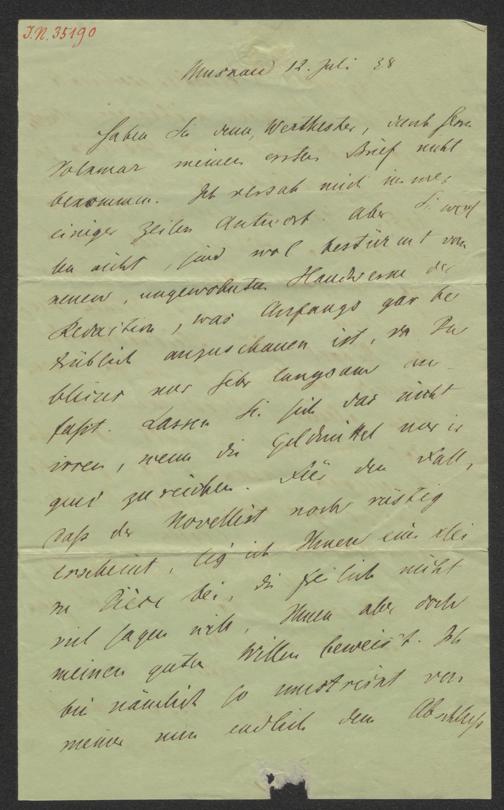 I.N. 35190
Murnau 12. Juli 88
Haben Sie denn, Werthester, durch Herrn
Volkmar meinen ersten Brief nicht
bekommen. Ich versah mich immer
einiger Zeilen Antwort. Aber Sie
nicht, sind wol bestürmt von
neuen, ungewohnten der
Redaction, was Anfangs gar be
trüblich anzuschauen ist, da
nur sehr langsam an
faßt. Lassen Sie sich das nicht
irren, wenn die Geldmittel nur
zureichen. Für den Fall,
daß der Novellist noch rüstig
erscheint, leg ich Ihnen eine
bei, die freilich nicht
viel sagen will, Ihnen aber doch
meinen guten Willen beweist. Ich
bin nämlich so von
meiner nun endlich dem Abschluß